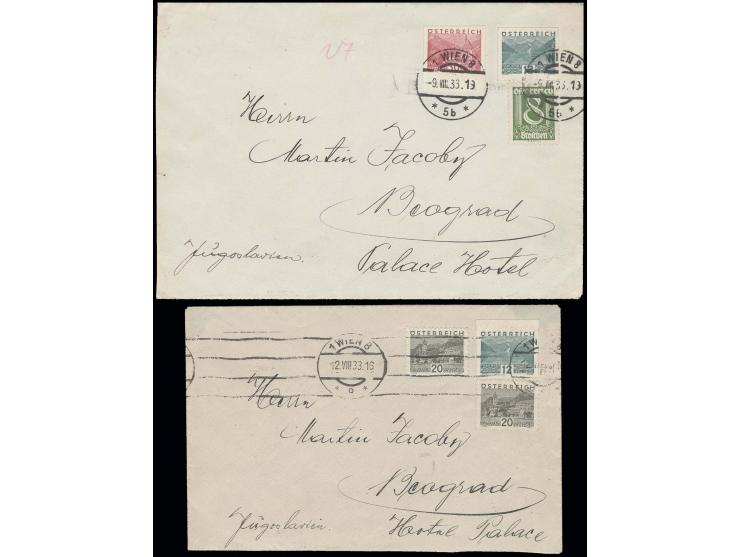 V7
ÖSTERREICH ÖSTERREICH
1 WIEN 8 1 WIEN 8
-9.VIII.33.19 -9.VIII.33.19
* 5b * 6b *
8
Groschen
Herrn
Martin Jacoby
Beograd
Jugoslavien.
Palace Hotel
ÖSTERREICH ÖSTERREICH
1 WIEN 8
12.VIII.33.16
20 12
ÖSTERREICH
20
Herrn
Martin Jacoby
Beograd
Jugoslavien.
Hotel Palace